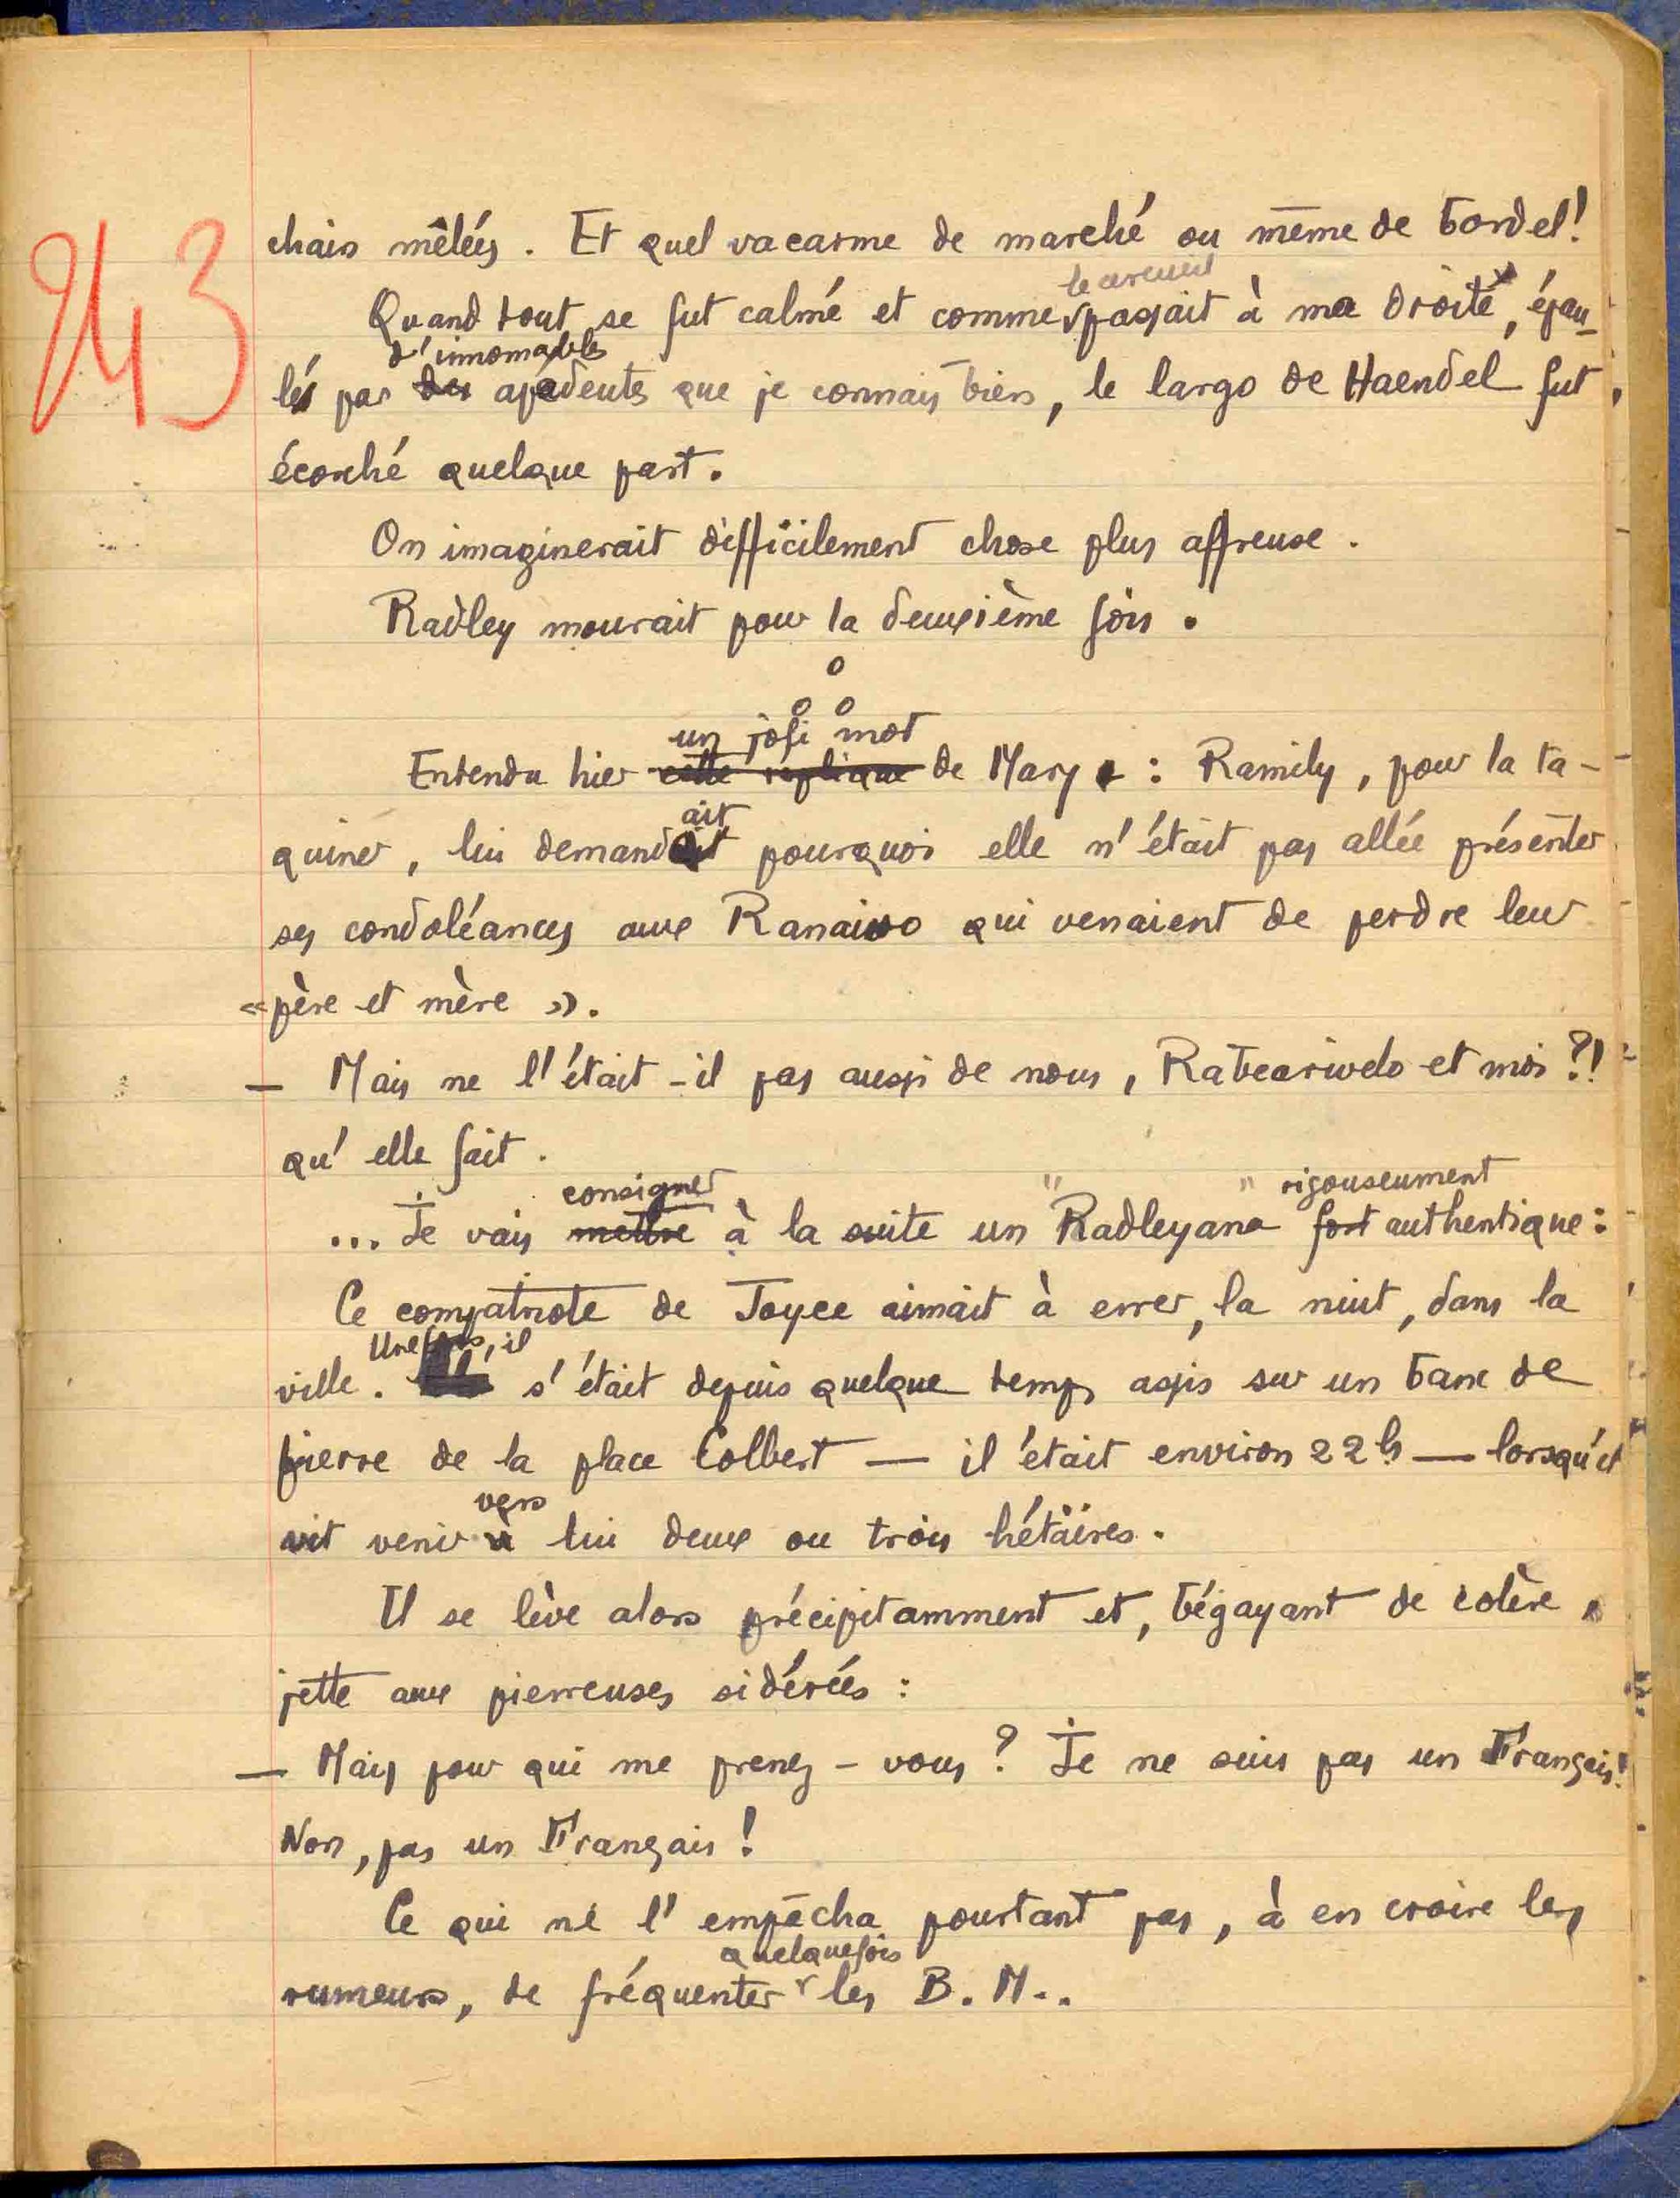 243
chais mêlés. Et quel vacarme de marché ou même de bordel!
le cercueil
Quand tout se fut calmé et comme passait à ma droite, épau-
d'innomables
lé par des apédeutes que je connais bien, le largo de Haendel fut
écorché quelque part.
On imaginerait difficilement chose plus affreuse.
Radley mourait pour la deuxième fois.
o
o o
un joli mot
Entendu hier cette replique de Mary : Ramily, pour la ta-
ait
quiner, lui demandait pourquoi elle n'était pas allée présenter
ses condoléances aux Ranaivo qui venaient de perdre leur
«père et mère ».
— Mais ne l'était-il pas aussi de nous, Rabearivelo et moi ?!
qu'elle fait.
consigner " " rigouseument
... Je vais mettre à la suite un Radleyana fort authentique :
Ce compatriote de Joyce aimait à errer, la nuit, dans la
Une fois, il
ville. s'était depuis quelque temps assis sur un banc de
pierre de la place Colbert — il était environ 22 h — lorsqu'il
vers
vit venir à lui deux ou trois hétaïres.
Il se lève alors précipitamment et, bégayant de colère,
jette aux pierreuses sidérées :
— Mais pour qui me prenez-vous ? Je ne suis pas un Français!
Non, pas un Français !
Ce qui ne l'empêcha pourtant pas, à en croire les
quelquefois
rumeurs, de fréquenter les B. M..